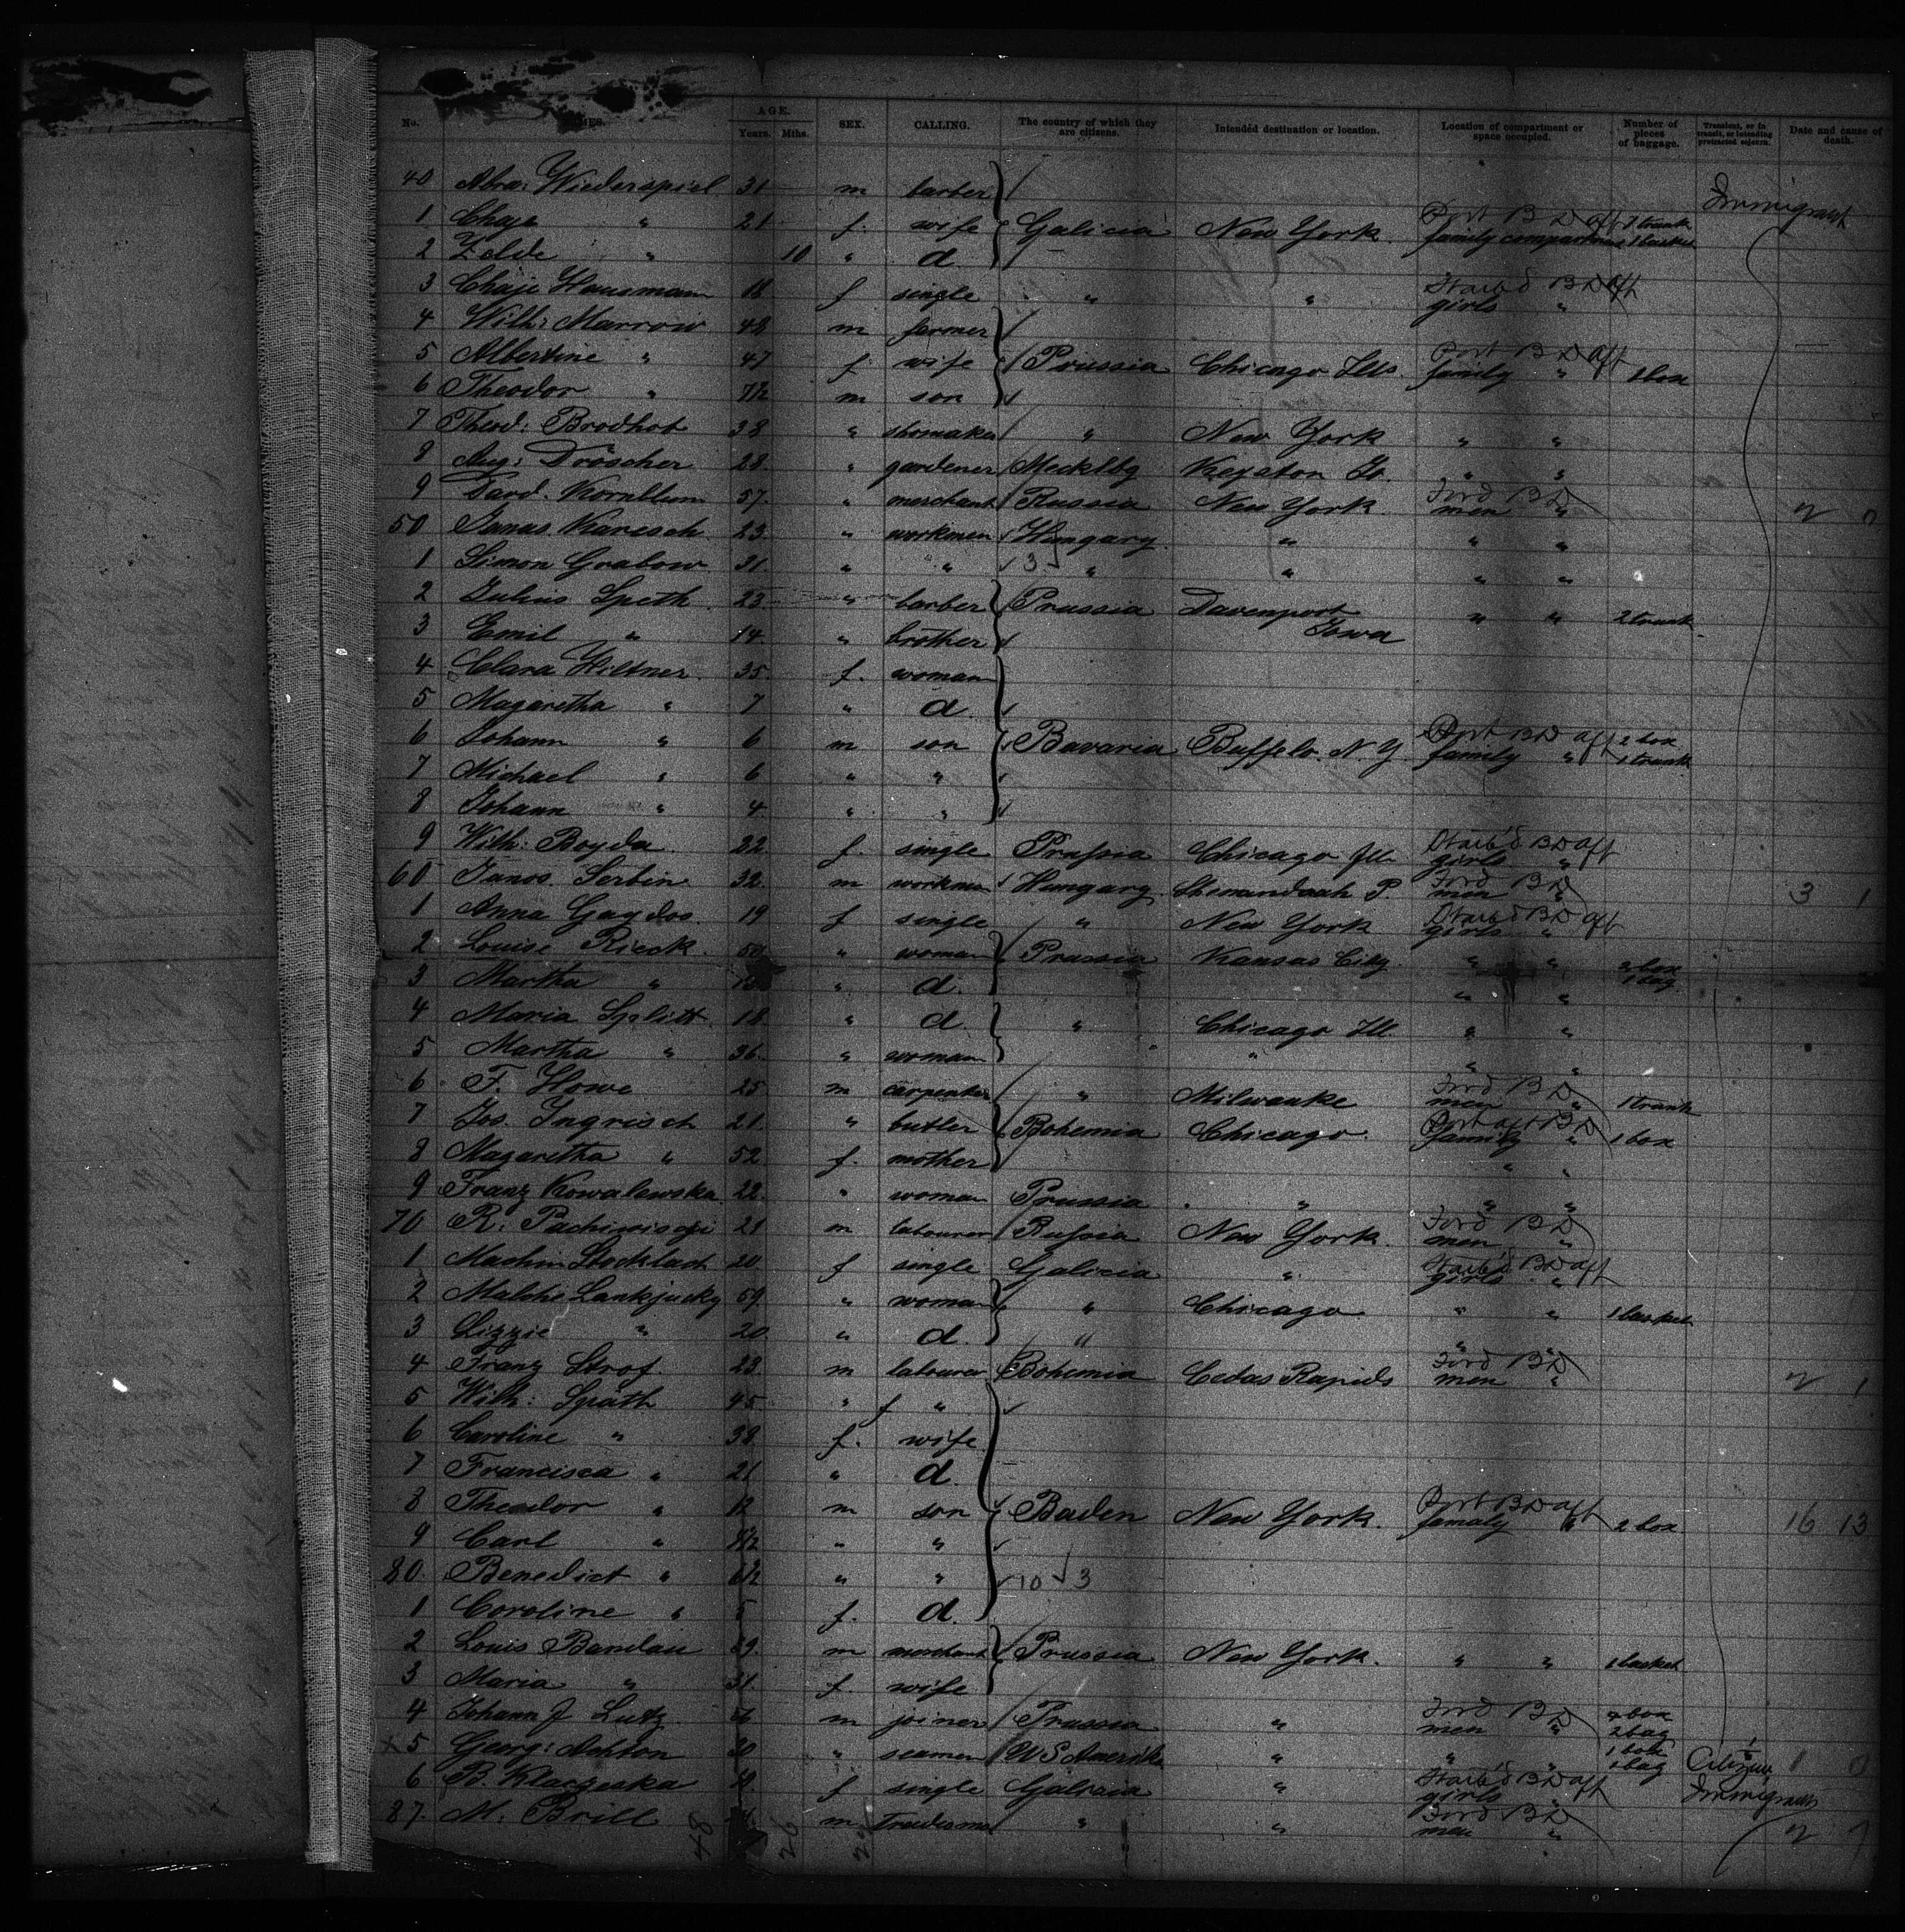 No. NAMES. AGE. Years. Mths. SEX. CALLING. The country of which they are citizens. Intended destination or location. Location of compartment or space occupied. Number of pieces of baggage. Transient, or in transit, or intending protracted sojourn. Date and cause of death.
40 Abra: Wiederspiel 31 m barber Immigrant
1 Chaje " 21 f. wife Galicia New York Port B D aft family compartment 1 trunk 1 basket
2 Zelde " 10 " d
3 Chaje Hausmann 18 f single " " Starb'd B D Aft girls "
4 Wilh: Marrow 48 m farmer
5 Albertine " 47 f. wife Prussia Chicago Ills. Port B D aft family " 1 box
6 Theodor " 7½ m son
7 Theod: Brodhot 38 " shomaker " New York " "
8 Aug: Dröscher 28 " gardener Mecklbg Keyston " "
9 Kornblum 57 " merchant Russia New York Ford B D men " 2 0
50 Janas Karesch 23 " workmen Hungary " " "
1 Simon Grabow 31 " " 3 " " " "
2 Julius Speth 23 " barber Prussia Davenport Iowa " " 2 trunk
3 Emil " 14 " brother
4 Clara Hiltner 35 f. woman
5 Magaretha " 7 " d
6 Johann " 6 m son Bavaria Buffelo. N. Y Port B D aft family " 2 box 1 trunk
7 Michael " 6 " "
8 Johann " 4 " "
9 Wilh: Boyda 22 f. single Prussia Chicago Ill. Starb'd B D aft girls "
60 Janos Serbin 32 m workmen Hungary Shenandoah P. Ford B D men " 3 1
1 Anna Gaydos 19 f single " New York Starb'd B D aft girls "
2 Louise Rieck " woman Prussia Kansas City " " 2 box 1 bag
3 Martha " " d. " "
4 Maria Splitt 18 " d " Chicago Ill. " "
5 Martha " 36 " woman " " "
6 F. Howe 25 m carpenter " Milwauke Ford B D men " 1 trunk
7 Jos. Ingrisch 21 " butler Bohemia Chicago Port aft B D family " 1 box
8 Magaretha " 52 f. mother " "
9 Franz Kowalewska 22 " woman Prussia " " "
70 R: 21 m labourer Russia New York Ford B D men "
1 Machin Stocklach 20 f single Galicia " Starb'd B D aft girls "
2 Malche Lankjucky 59 " woman " Chicago " " 1 basket
3 Lizzie " 20 " d. " "
4 Franz Strof 23 m labourer Bohemia Cedar Rapids Ford B D men " 2 1
5 Wilh: Späth 45 " f "
6 Caroline " 38 f. wife
7 Francisca " 21 " d.
8 Theodor " 12 m son Baden New York. Port B D aft famely " 2 box 16 13
9 Carl " 8½ " "
80 Benedict " 6½ " " 10 3
1 Coroline " 5 f. d.
2 Louis Bandau 39 m merchant Prussia New York. " " 1 basket
3 Maria " 31 f. wife
4 Johann J Lutz m joiner Prussia " Ford B D men " 2 bag
5 Georg: Ashton 30 " seamen U S Amerika " " " 1 bag Citizen 1 0
6 B. Klarzeska f single Galizia " Starb'd B D aft girls " Immigrants
87. M. Brill m Tradesman " " Ford B D men " 2
48 26